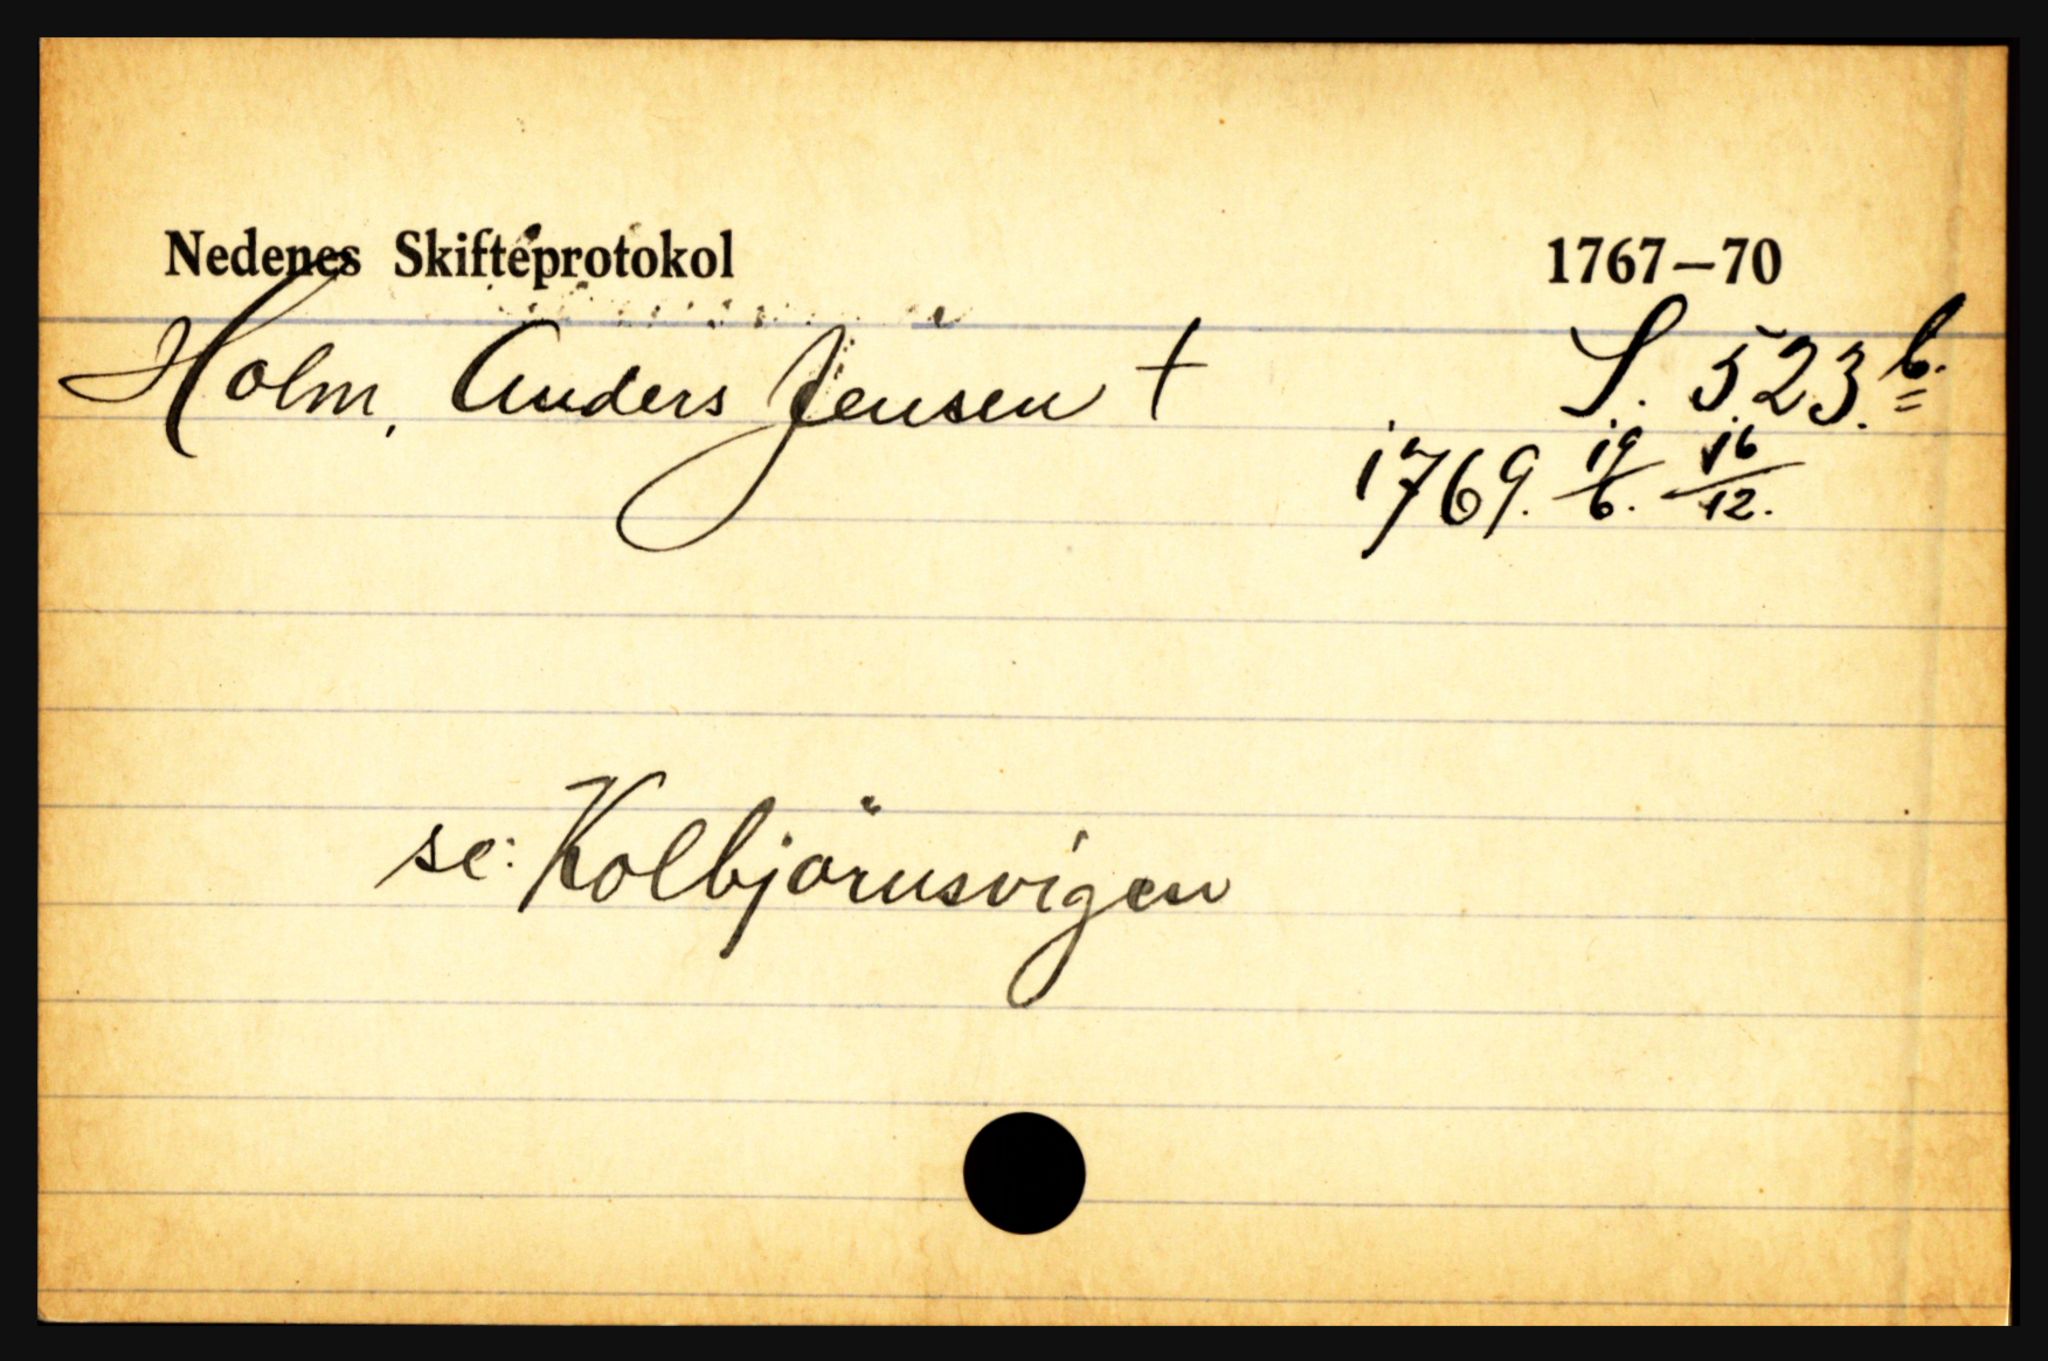 Nedenes Skifteprotokol 1767–70
Holm, Anders Jensen † S. 523 b.
1769. 19/6. 16/12.
se: Kolbjörnsvigen